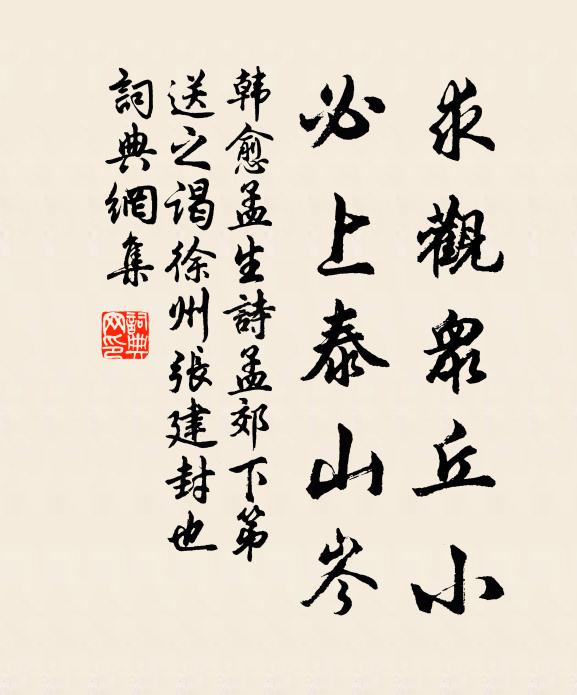 求觀衆丘小
必上泰山岑
韩愈孟生詩孟郊下第
送之谒徐州張建封也
詞典網集
詞典
网印